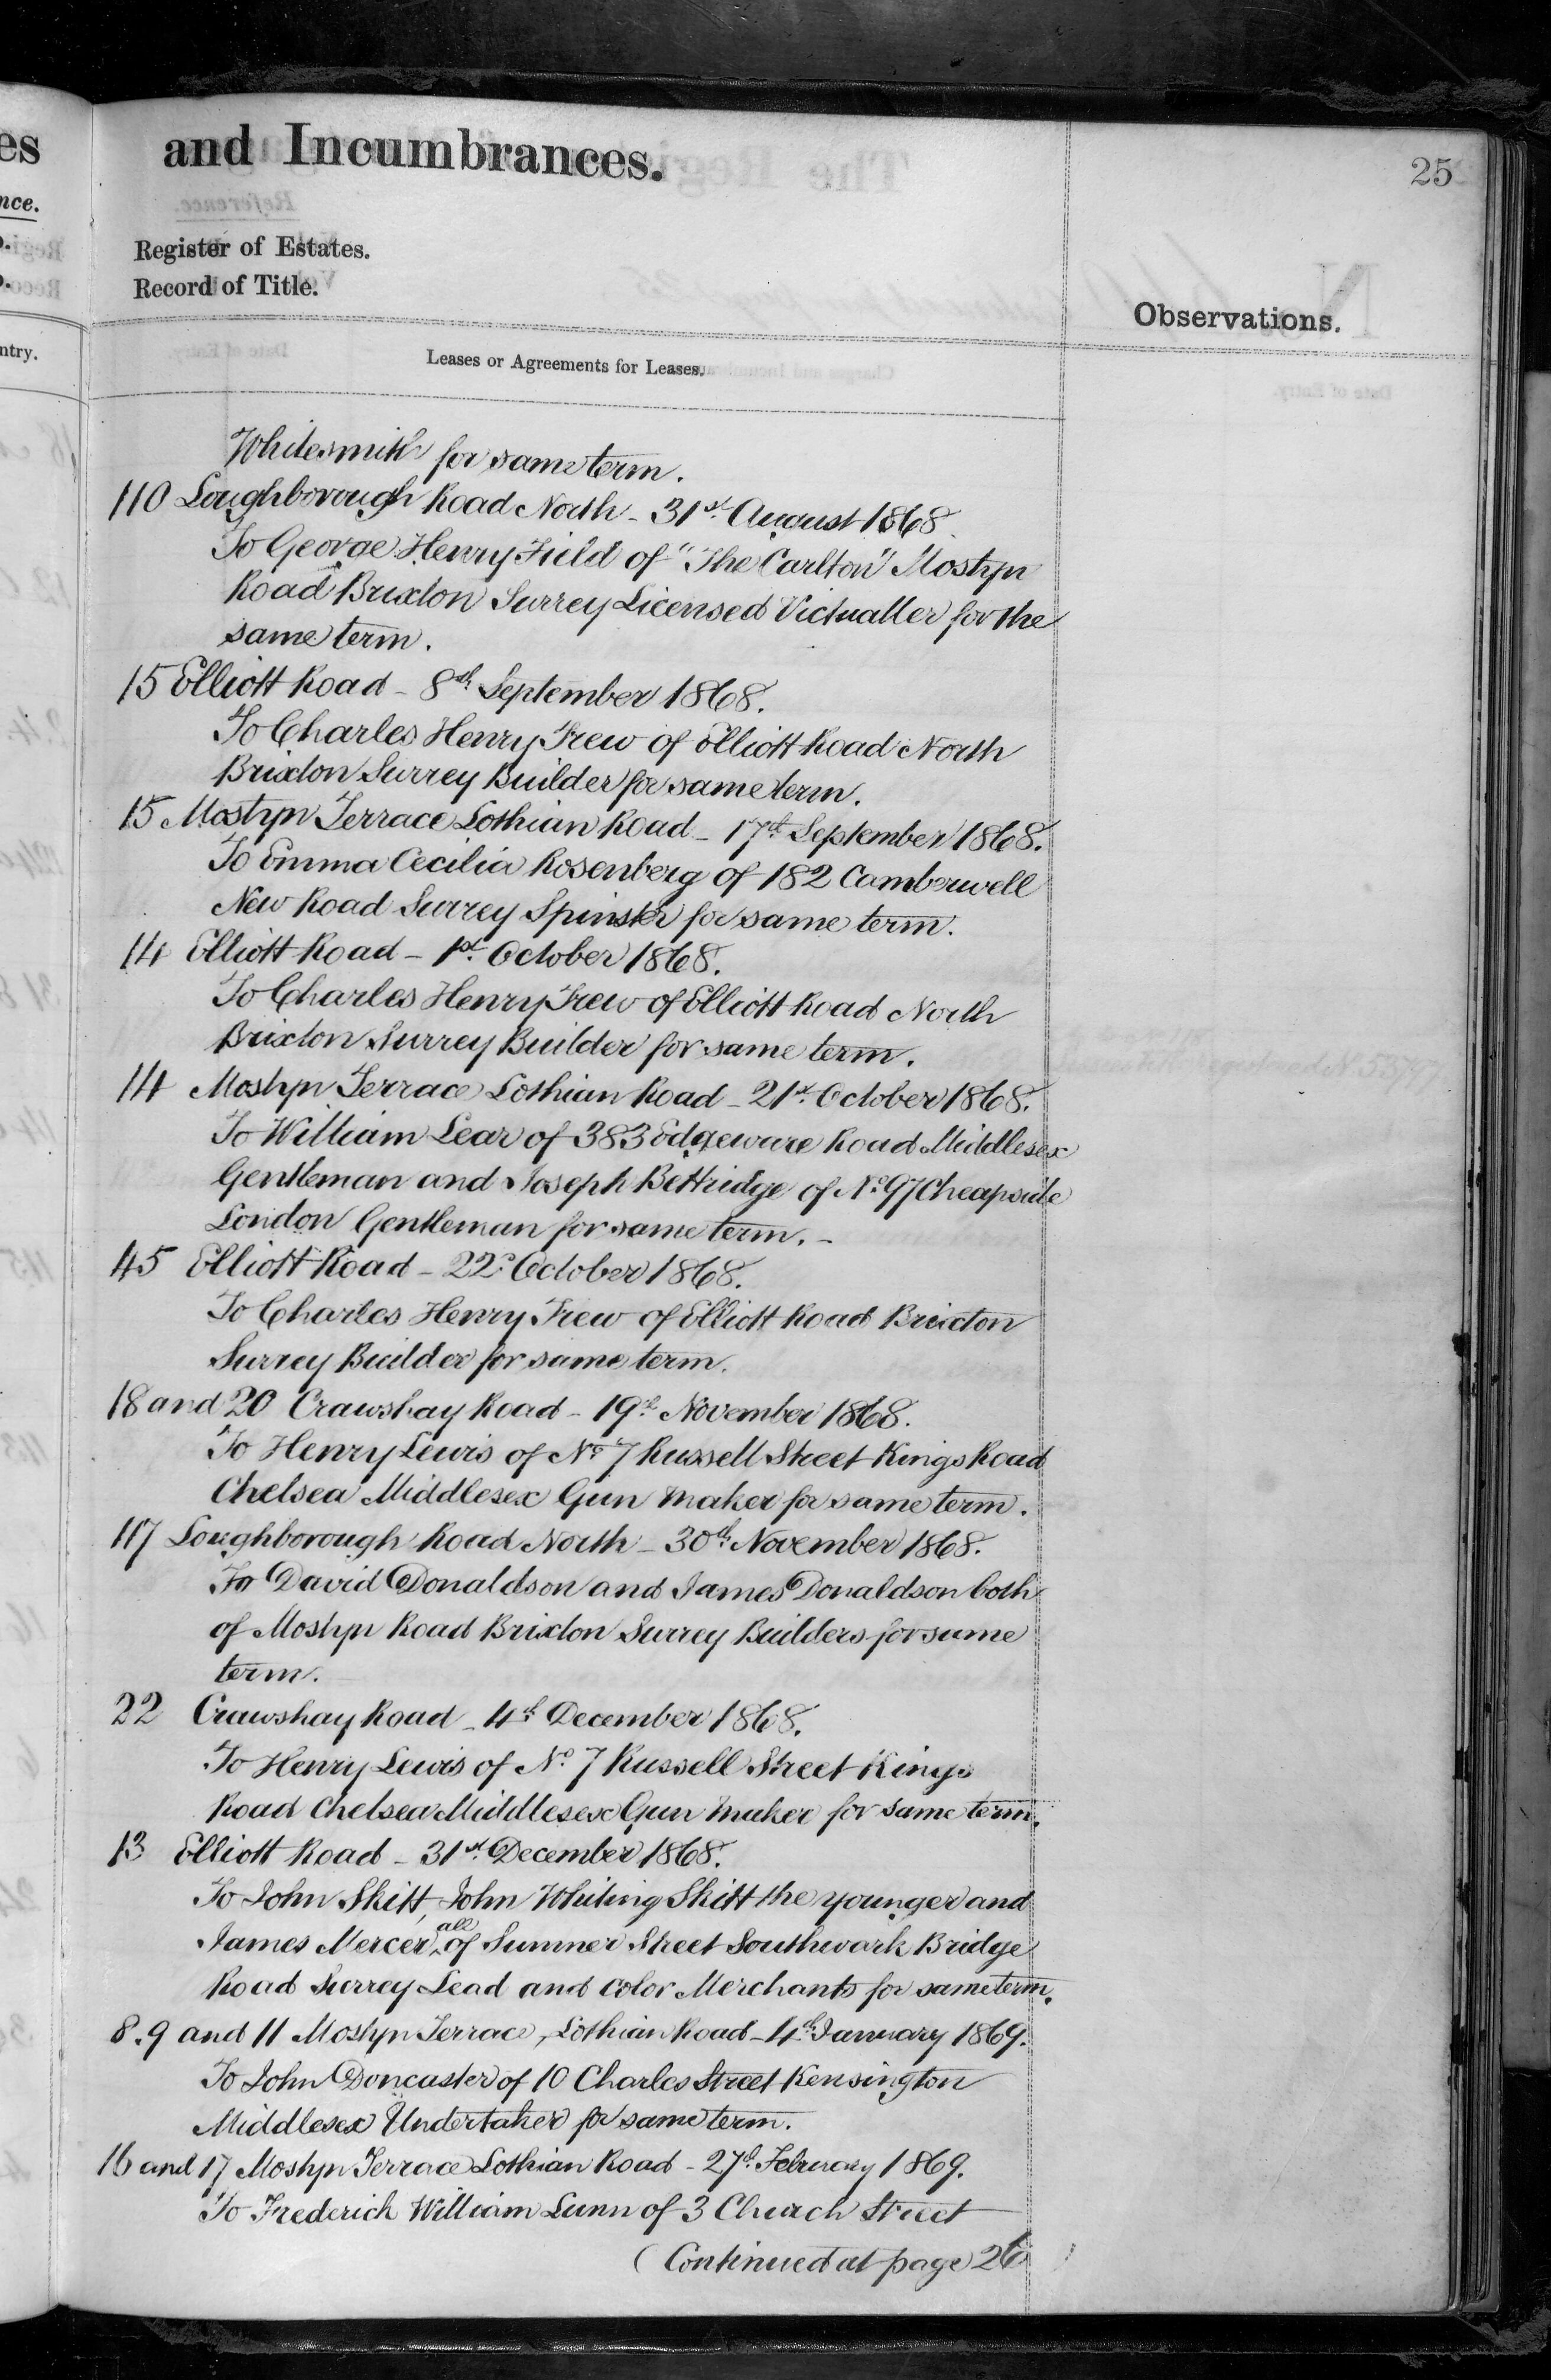 and Incumbrances.
25
Register of Estates.
Record of Title.
Observations.
Leases or Agreements for Leases.
Whitesmith for same term.
110 Loughborough Road North - 31st August 1868.
To George Henry Field of "The Carlton" Mostyn
Road Brixton Surrey Licensed Victualler for the
same term.
15 Elliott Road - 8th September 1868.
To Charles Henry Trew of Elliott Road North
Brixton Surrey Builder for same term.
15 Mostyn Terrace Lothian Road - 17th September 1868.
To Emma Cecilia Rosenberg of 182 Camberwell
New Road Surrey Spinster for same term.
14 Elliott Road - 1st October 1868.
To Charles Henry Trew of Elliott Road North
Brixton Surrey Builder for same term.
14 Mostyn Terrace Lothian Road - 21st October 1868.
To William Lear of 383 Edgeware Road Middlesex
Gentleman and Joseph Bettridge of No. 97 Cheapside
London Gentleman for same term. -
45 Elliott Road - 22d October 1868.
To Charles Henry Trew of Elliott Road Brixton
Surrey Builder for same term.
18 and 20 Crawshay Road - 19th November 1868.
To Henry Lewis of No. 7 Russell Street Kings Road
Chelsea Middlesex Gun Maker for same term.
117 Loughborough Road North - 30th November 1868.
To David Donaldson and James Donaldson both
of Mostyn Road Brixton Surrey Builders for same
term.
22 Crawshay Road - 4th December 1868.
To Henry Lewis of No. 7 Russell Street Kings
Road Chelsea Middlesex Gun Maker for same term.
13 Elliott Road - 31st December 1868.
To John Skitt, John Whiting Skitt the younger and
James Mercer, all of Sumner Street Southwark Bridge
Road Surrey Lead and Color Merchants for same term.
8. 9 and 11 Mostyn Terrace, Lothian Road - 4th January 1869.
To John Doncaster of 10 Charles Street Kensington
Middlesex Undertaker for same term.
16 and 17 Mostyn Terrace Lothian Road - 27th February 1869.
To Frederich William Lunn of 3 Church Street
(Continued at page 26)